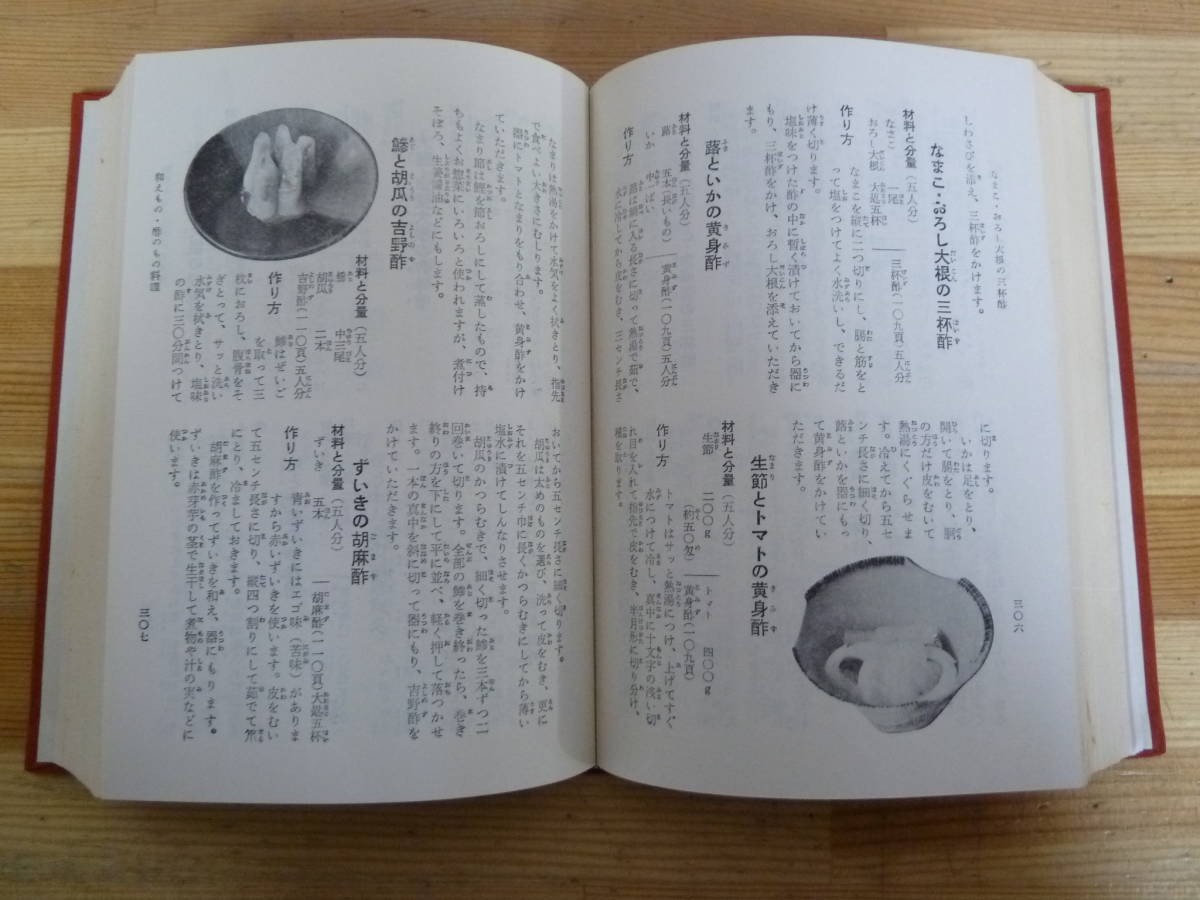 なまこ・おろし大根の三杯酢
しわさびを添え、三杯酢をかけます。
なまこ・おろし大根の三杯酢
材料と分量（五人分）
なまこ 一尾
おろし大根 大匙五杯
三杯酢（一〇九頁）五人分
作り方
なまこを縦に二つ切りにし、腸と筋をと
って塩をつけてよく水洗いし、できるだ
け薄く切ります。
塩味をつけた酢の中に暫く漬けておいてから器に
もり、三杯酢をかけ、おろし大根を添えていただき
ます。
蕗といかの黄身酢
材料と分量（五人分）
蕗 五本（長いもの）
いか 中一ぱい
黄身酢（一〇九頁）五人分
作り方
蕗は鍋に入る長さに切って熱湯で茹で、
水に冷してから皮をむき、三センチ長さ
に切ります。
いかは足をとり、
開いて腸をとり、胴
の方だけ皮をむいて
熱湯にくぐらせま
す。冷えてから五セ
ンチ長さに細く切り、
蕗といかを器にもっ
て黄身酢をかけてい
ただきます。
生節とトマトの黄身酢
材料と分量（五人分）
生節 二〇〇g
（約五〇匁）
トマト 四〇〇g
黄身酢（一〇九頁）
作り方
トマトはサッと熱湯につけ、上げてすぐ
水につけて冷し、真中に十文字の浅い切
れ目を入れて指先で皮をむき、半月形に切り分け、
種を取ります。
三〇六
なまりは熱湯をかけて水気をよく拭きとり、指先
で食べよい大きさにむしります。
器にトマトとなまりをもり合わせ、黄身酢をかけ
ていただきます。
なまり節は鰹を節おろしにして蒸したもので、持
ちもよくお惣菜にいろいろと使われますが、煮付け
そぼろ、生姜醤油などにもします。
鯵と胡瓜の吉野酢
材料と分量（五人分）
鯵 中三尾
胡瓜 二本
吉野酢（一一〇頁）五人分
作り方
鯵はぜいご
を取って三
枚におろし、腹骨をそ
ぎとって、サッと洗い
水気を拭きとり、塩味
の酢に三〇分間つけて
和えもの・酢のもの料理
おいてから五センチ長さに細く切ります。
胡瓜は太めのものを選び、洗って皮をむき、更に
それを五センチ巾に長くかつらむきにしてから薄い
塩水に漬けてしんなりさせます。
胡瓜のかつらむきで、細く切った鯵を三本ずつ二
回巻いて切ります。全部の鯵を巻き終ったら、巻き
終りの方を下にして平に並べ、軽く押して落つかせ
ます。一本の真中を斜に切って器にもり、吉野酢を
かけていただきます。
ずいきの胡麻酢
材料と分量（五人分）
ずいき 五本
胡麻酢（一一〇頁）大匙五杯
作り方
青いずいきにはエゴ味（苦味）がありま
すから赤いずいきを使います。皮をむい
て五センチ長さに切り、縦四つ割りにして茹でて笊
にとり、冷ましておきます。
胡麻酢を作ってずいきを和え、器にもります。
ずいきは赤芽芋の茎で生干して煮物や汁の実などに
使います。
三〇七